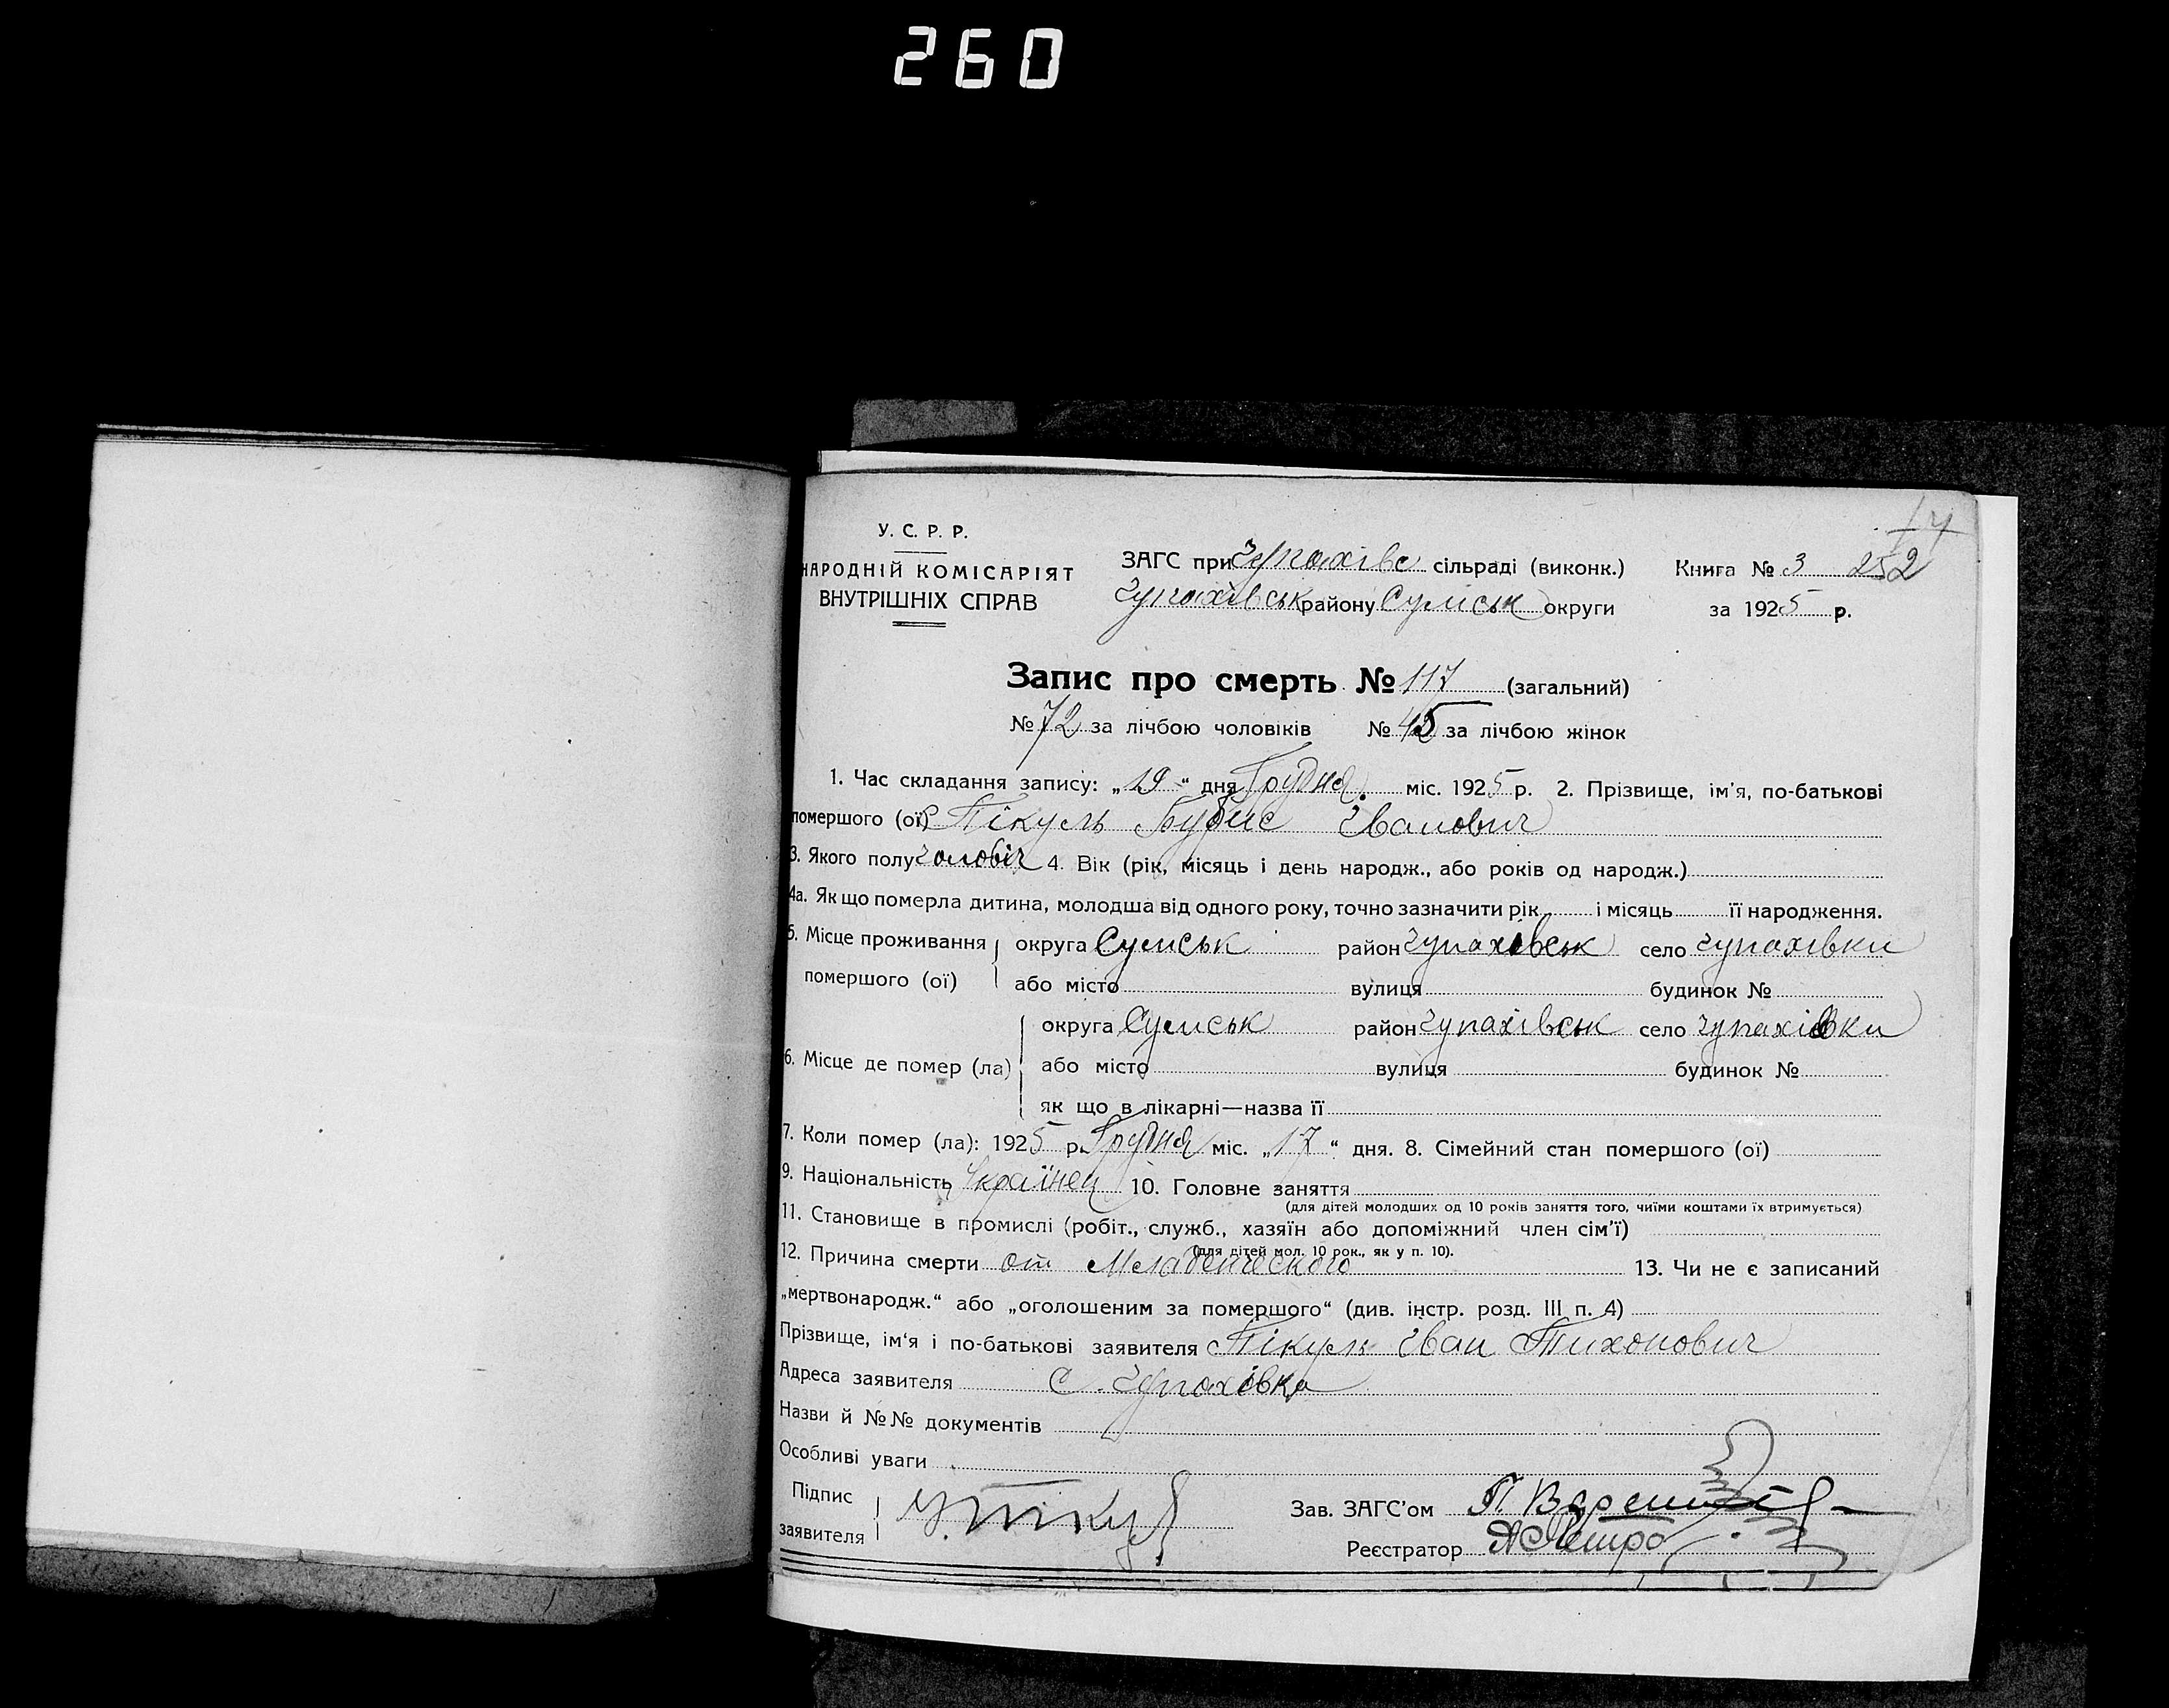 260
14
У. С. Р. Р.
НАРОДНІЙ КОМІСАРІЯТ
ВНУТРІШНІХ СПРАВ
ЗАГС при Чупахівс сільраді (виконк.)
Чупахівськ району Сумськ округи
Книга № 3 252
за 1925 р.
Запис про смерть № 117 (загальний)
№ 72 за лічбою чоловіків № 45 за лічбою жінок
1. Час складання запису: „19“ дня Грудня міс. 1925 р. 2. Прізвище, ім'я, по-батькові
помершого (ої) Пікуль Іванович
3. Якого полу чоловіч 4. Вік (рік, місяць і день народж., або років од народж.)
4а. Як що померла дитина, молодша від одного року, точно зазначити рік і місяць її народження.
5. Місце проживання округа Сумськ район Чупахівськ село Чупахівки
помершого (ої) або місто вулиця будинок №
округа Сумськ район Чупахівськ село Чупахівки
6. Місце де помер (ла) або місто вулиця будинок №
як що в лікарні—назва її
7. Коли помер (ла): 1925 р. Грудня міс. „17“ дня. 8. Сімейний стан помершого (ої)
9. Національність Українец 10. Головне заняття
(для дітей молодших од 10 років заняття того, чиїми коштами їх втримується)
11. Становище в промислі (робіт., служб., хазяїн або допоміжний член сім'ї)
(для дітей мол. 10 рок., як у п. 10).
12. Причина смерти от Младенческого 13. Чи не є записаний
„мертвонародж.“ або „оголошеним за помершого“ (див. інстр. розд. III п. 4)
Прізвище, ім'я і по-батькові заявителя Пікуль Іван Тихонович
Адреса заявителя с. Чупахівка
Назви й №№ документів
Особливі уваги
Підпис
заявителя
Зав. ЗАГС'ом П.
Реєстратор